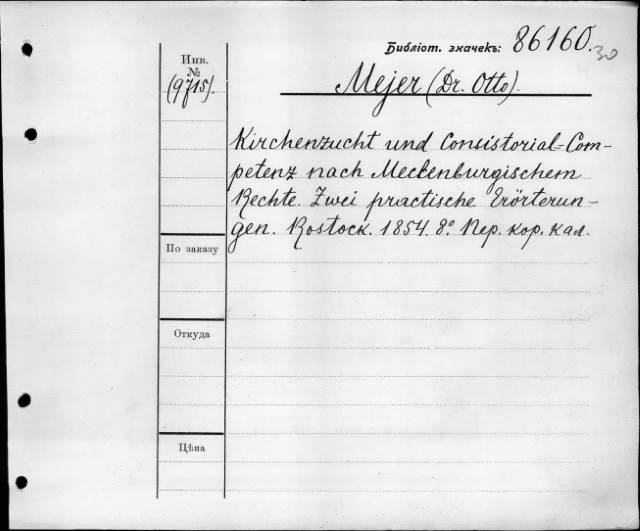 Библіот. значекъ: 86160.30
Инв.
№
(9715).
Mejer (Dr. Otto).
Kirchenzucht und Consistorial=Com-
petenz nach Mecklenburgischem
Rechte. Zwei practische Erörterun-
gen. Rostock. 1854. 8º. Пер. кор. кал.
По заказу
Откуда
Цѣна